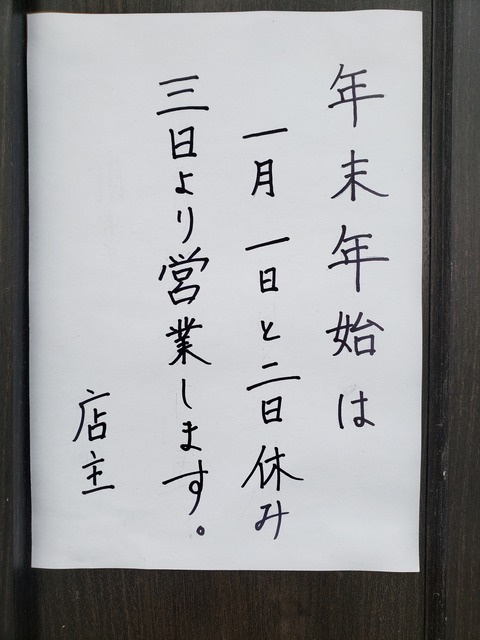 年末年始は
一月一日と二日休み
三日より営業します。
店主